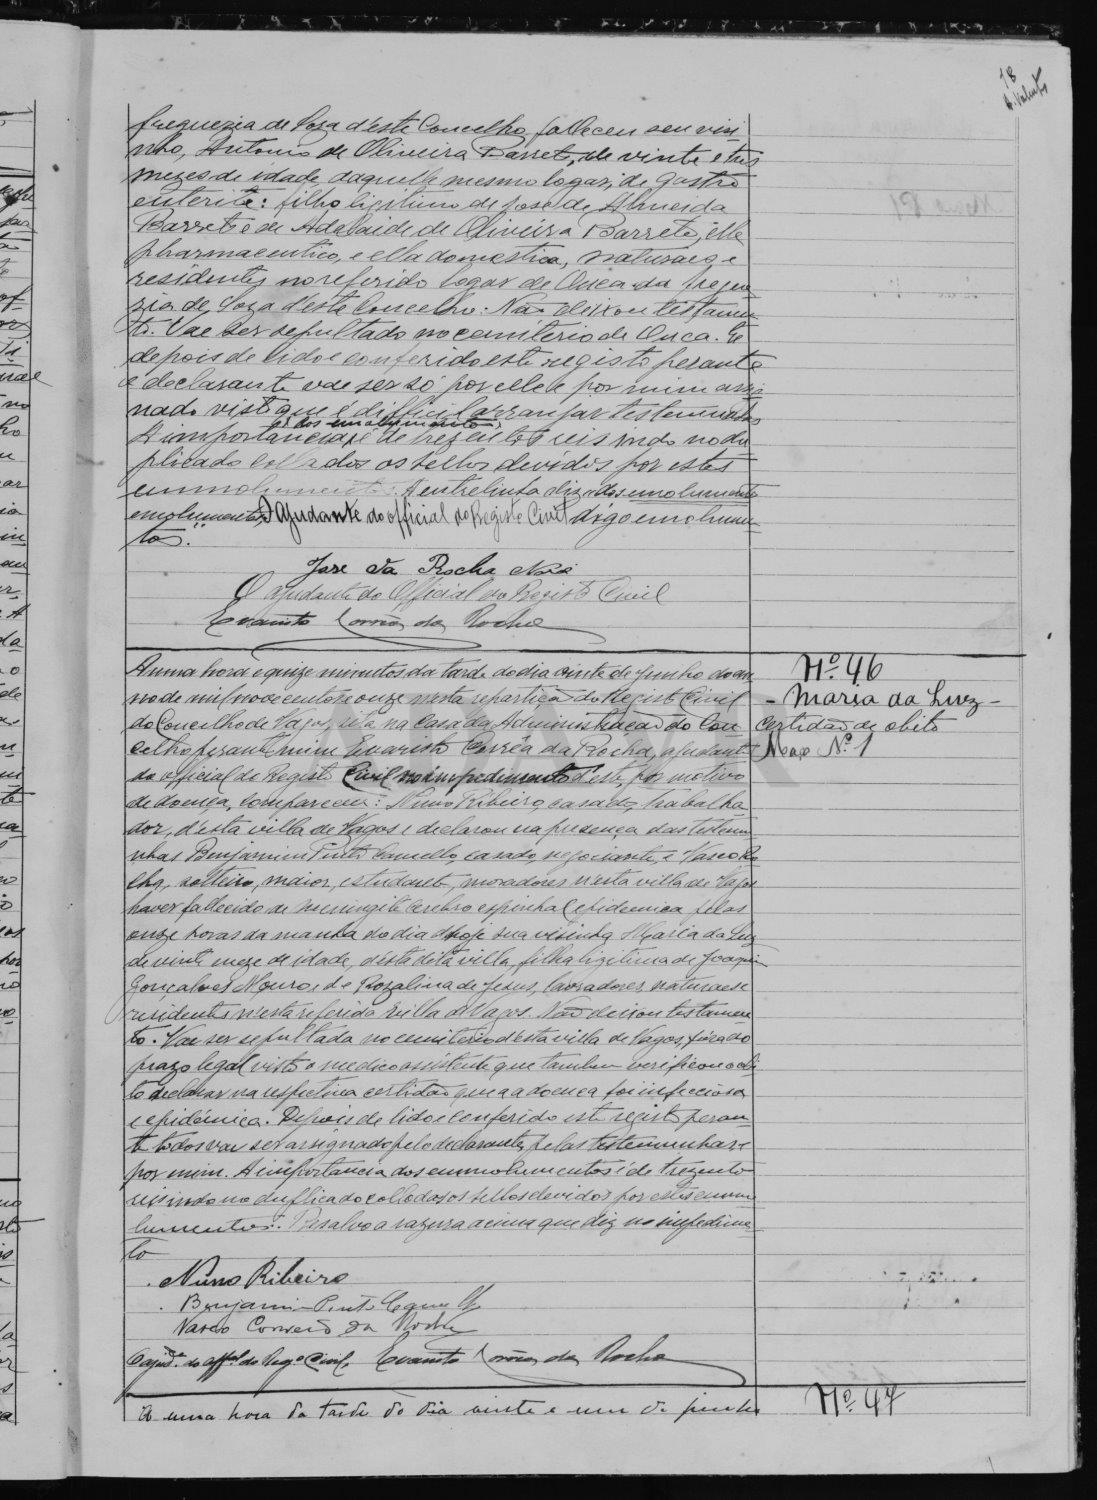 18
freguezia de Soza d'este Concelho, falleceu seu visi
nho, Antonio de Oliveira Barreto, de vinte e tres
mezes de idade daquelle mesmo logar, de gastro
enterite: filho legitimo de José de Almeida
Barreto e de Adelaide de Oliveira Barreto, elle
pharmaceutico, e ella domestica, naturaes e
residentes no referido logar de Ouca da fregue
zia de Soza d'este Concelho. Não deixou testamen
to. Vae ser sepultado no cemiterio de Ouca. E
depois de lido e conferido este registo perante
o declarante vae ser só por elle e por mim assi
nado visto que é difficil arranjar testemunhas
dos emolumentos
A importancia é de trezentos reis indo no du
plicado collados os sellos devidos por estes
emmolumentos. A entrelinha diz: dos emolumentos
emolumentos. O Ajudante do official do Registo Civil digo emolumen
tos."
José da Rocha
O ajudante do Official do Registo Civil
Evaristo Corrêa da Rocha
A uma hora e quize minutos da tarde do dia vinte de Junho do an
no de mil novecentos e onze nesta repartição do Registo Civil
do Concelho de Vagos, sita na Casa da Administração do Con
celho perante mim Evaristo Corrêa da Rocha, ajudante
do official do Registo Civil no impedimento d'este, por motivo
de doença, compareceu: Nuno Ribeiro, casado, trabalha
dor, d'esta villa de Vagos e declarou na presença das testemu
nhas Benjamim Pinto Camello, casado, negociante, e Vasco Ro
cha, solteiro, maior, estudante, moradores n'esta villa de Vagos
haver fallecido de meningite cerebro espinhal epidemica pelas
onze horas da manhã do dia d'hoje sua visinha Maria da Luz
de vinte meze de idade, desta dita villa, filha ligitima de Joaquim
Gonçalves Mouro e de Rozalina de Jesus, lavradores, naturaes e
residentes n'esta referida villa de Vagos. Não deixou testamen
to. Vae ser sepultada no cemiterio d'esta villa de Vagos, fóra do
prazo legal visto o medico assistente que tambem verificou o obi
to declarar na respectiva certidão que a doença foi infecciosa
e epidémica. Depois de lido e conferido este registo peran
te todos vae ser assignado pelo declarante, pelas testemunhas e
por mim. A importancia dos emmolumentos é de trezentos
reis indo no duplicado collados os sellos devidos por estes emmo
lumentos. Resalvo a razura acima que diz no impedimen
to
Nuno Ribeiro
Benjamim Pinto Camello
Vasco Correia da Rocha
O ajude. do offal. do Rego. Civil, Evaristo Corrêa da Rocha
Nº. 46
- Maria da Luz -
Certidão de obito
Maço Nº. 1
A uma hora da tarde do dia vinte e um de junho
Nº. 47